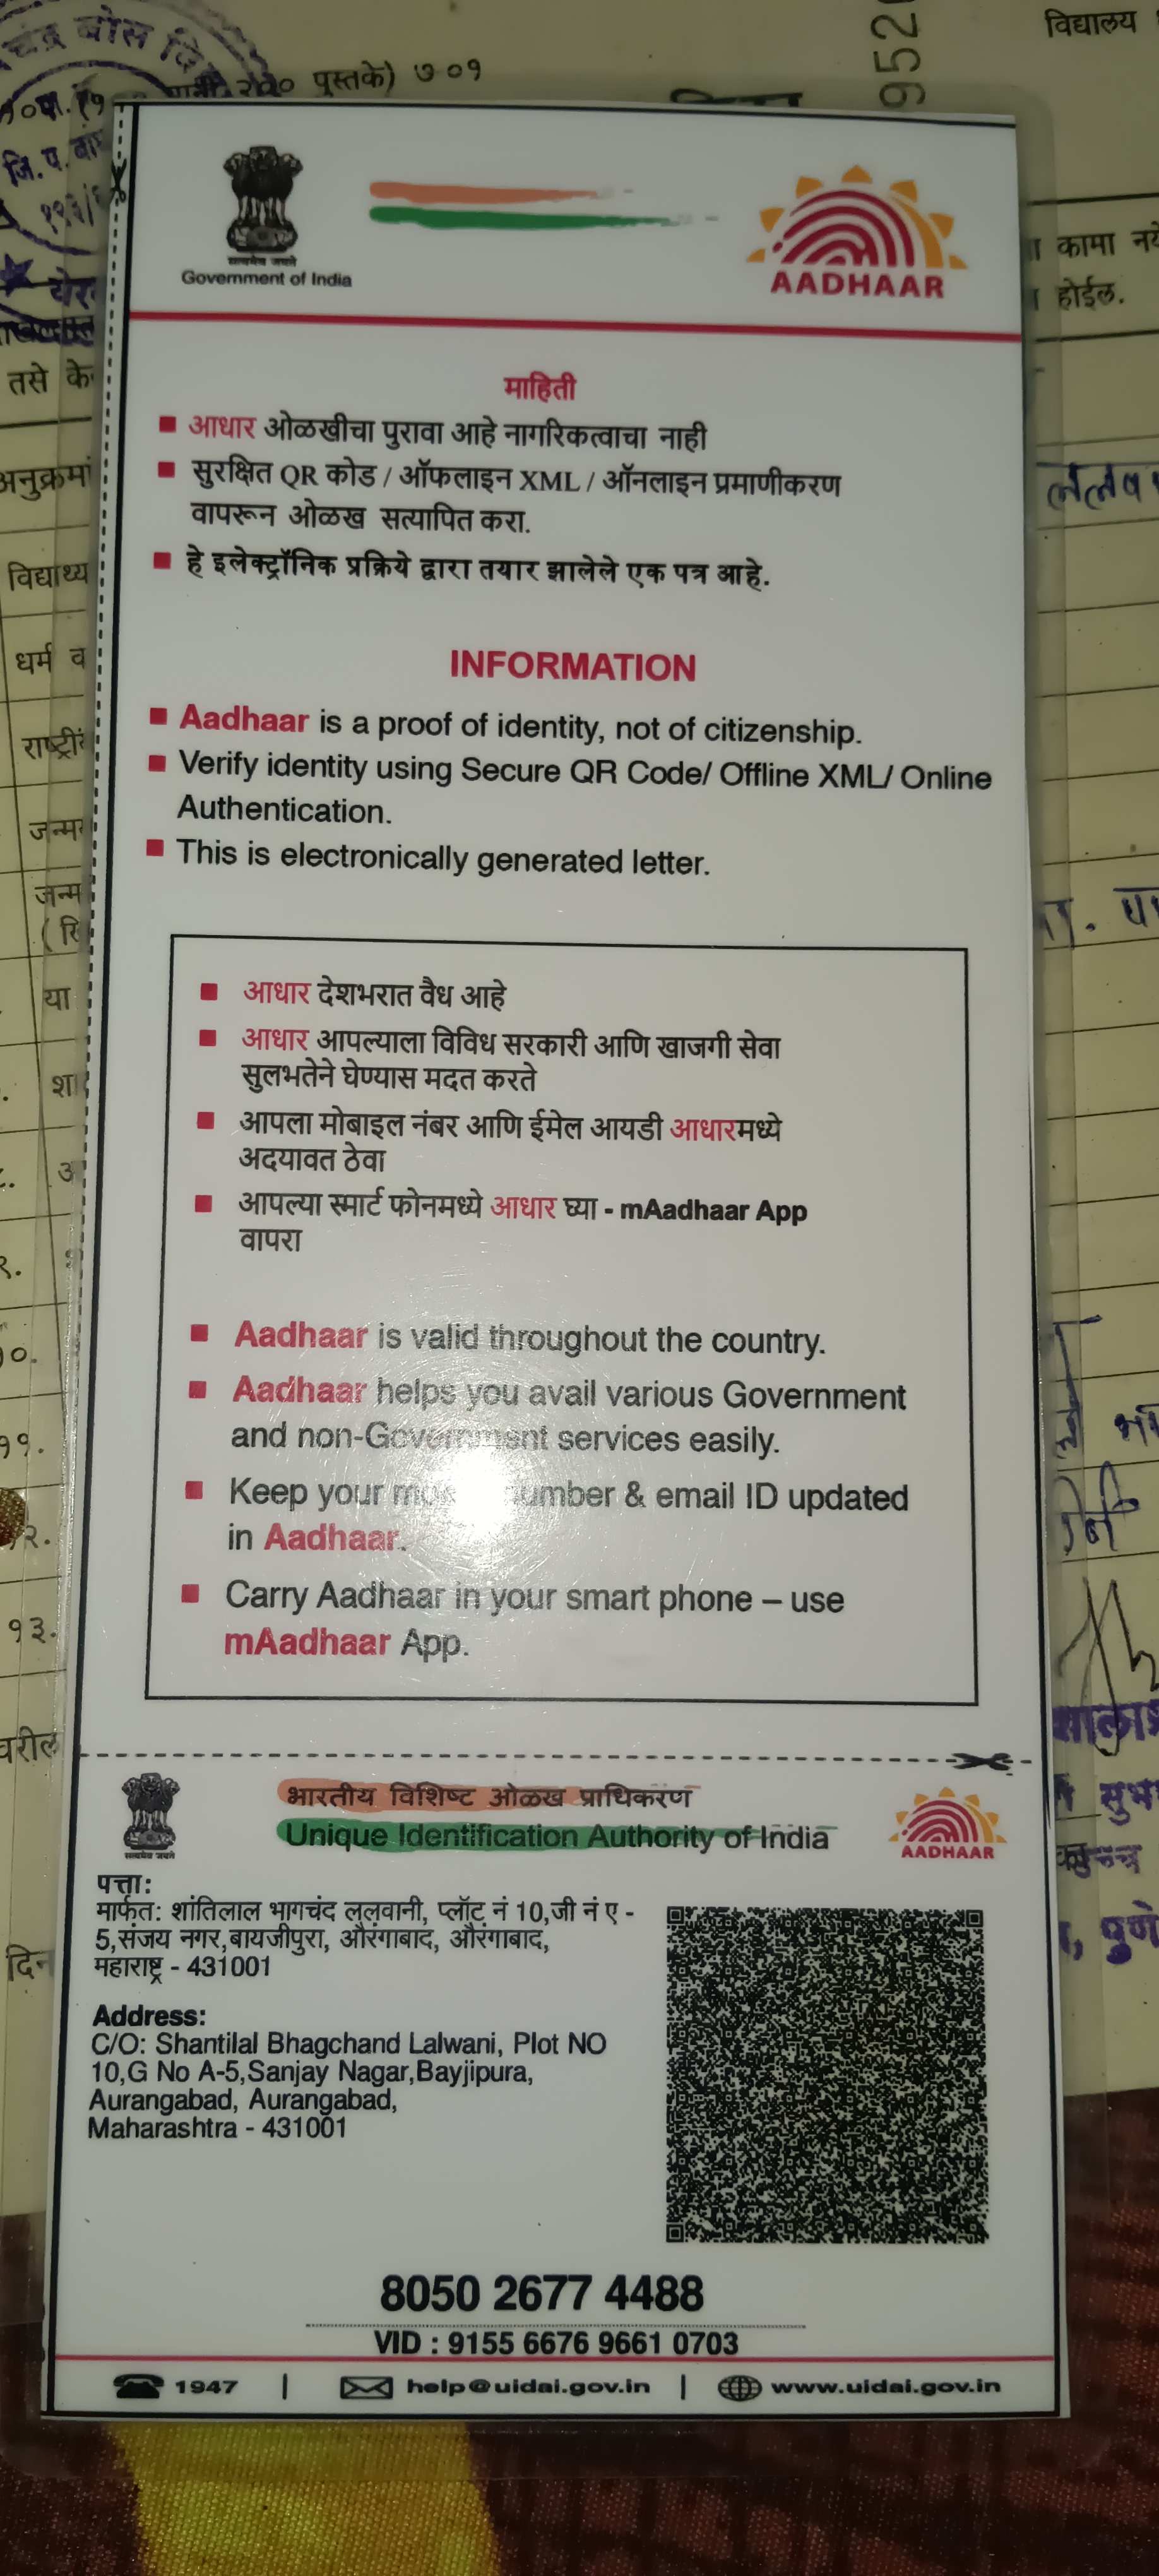 चंद्र बोस वि
पुस्तके) ७०१
952
विद्यालय
जि.प.
कामा नये
होईल.
तसे के
अनुक्रमां
विद्यार्थ्य
धर्म व
राष्ट्री
जन्म
जन्म
या
शा
१३.
वरील
दिन
पुणे
सत्यमेव जयते
Government of India
AADHAAR
माहिती
आधार ओळखीचा पुरावा आहे नागरिकत्वाचा नाही
सुरक्षित QR कोड / ऑफलाइन XML / ऑनलाइन प्रमाणीकरण
वापरून ओळख सत्यापित करा.
हे इलेक्ट्रॉनिक प्रक्रिये द्वारा तयार झालेले एक पत्र आहे.
INFORMATION
Aadhaar is a proof of identity, not of citizenship.
Verify identity using Secure QR Code/ Offline XML/ Online
Authentication.
This is electronically generated letter.
आधार देशभरात वैध आहे
आधार आपल्याला विविध सरकारी आणि खाजगी सेवा
सुलभतेने घेण्यास मदत करते
आपला मोबाइल नंबर आणि ईमेल आयडी आधारमध्ये
अदयावत ठेवा
आपल्या स्मार्ट फोनमध्ये आधार घ्या - mAadhaar App
वापरा
Aadhaar is valid throughout the country.
Aadhaar helps you avail various Government
and non-Government services easily.
Keep your number & email ID updated
in Aadhaar.
Carry Aadhaar in your smart phone – use
mAadhaar App.
सत्यमेव जयते
भारतीय विशिष्ट ओळख प्राधिकरण
Unique Identification Authority of India
AADHAAR
पत्ता:
मार्फत: शांतिलाल भागचंद ललवानी, प्लॉट नं 10,जी नं ए -
5,संजय नगर,बायजीपुरा, औरंगाबाद, औरंगाबाद,
महाराष्ट्र - 431001
Address:
C/O: Shantilal Bhagchand Lalwani, Plot NO
10,G No A-5,Sanjay Nagar,Bayjipura,
Aurangabad, Aurangabad,
Maharashtra - 431001
8050 2677 4488
VID : 9155 6676 9661 0703
1947 | help@uidai.gov.in | www.uidai.gov.in